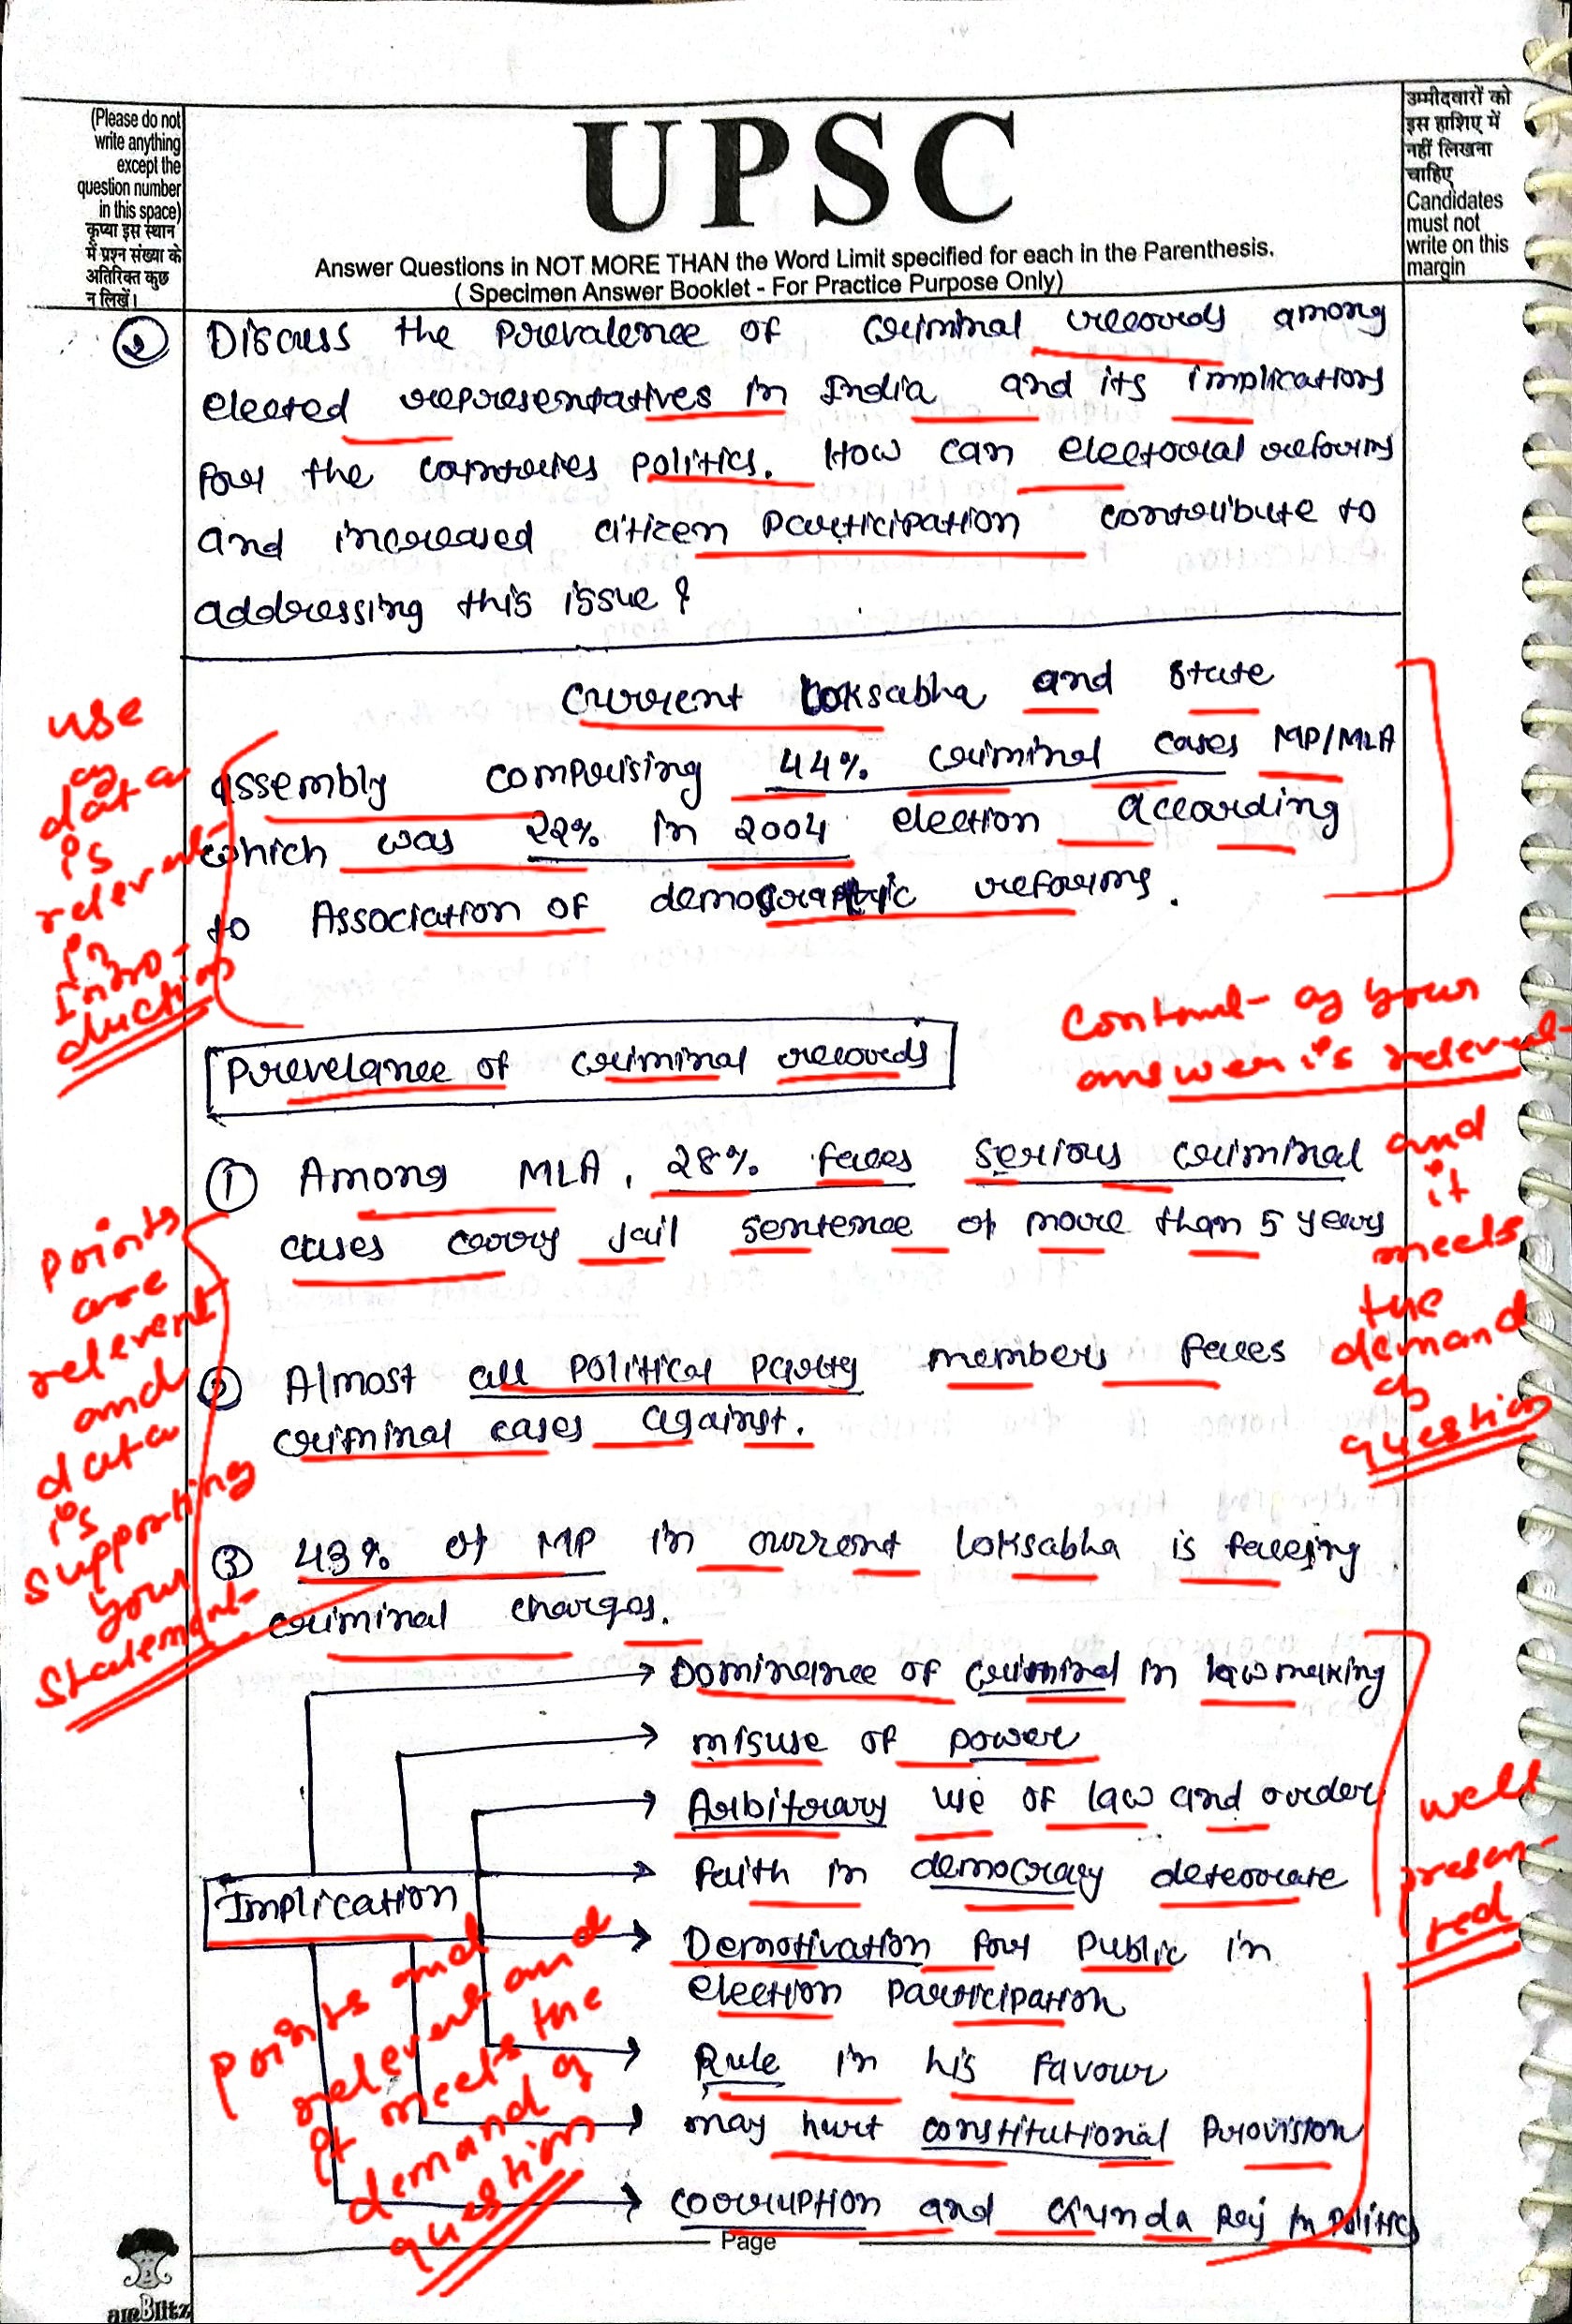 (Please do not
write anything
except the
question number
in this space)
कृप्या इस स्थान
में प्रश्न संख्या के
अतिरिक्त कुछ
न लिखें।
UPSC
Answer Questions in NOT MORE THAN the Word Limit specified for each in the Parenthesis.
( Specimen Answer Booklet - For Practice Purpose Only)
उम्मीदवारों को
इस हाशिए में
नहीं लिखना
चाहिए
Candidates
must not
write on this
margin
② Discuss the prevalence of criminal records among
elected representatives in India and its implications
for the countries politics. How can electoral reforms
and increased citizen participation contribute to
addressing this issue ?
Current Loksabha and State
assembly comprising 44% criminal cases MP/MLA
which was 22% in 2004 election according
to Association of reforms.
use
of
data
is
relevant
in
Intro-
duction
Prevelance of criminal records
Content of your
answer is relevent
and
it
meets
the
demand
of
question
① Among MLA, 28% faces serious criminal
cases carry jail sentence of more than 5 years
② Almost all political party members faces
criminal cases against.
③ 43% of MP in current loksabha is faceing
criminal charges.
Points
are
relevent
and
data
is
supporting
your
Statement
Implication
→ Dominance of criminal in law making
→ misuse of power
→ Arbitrary use of law and order
→ faith in democracy deteorate
→ Demotivation for public in
election participation
→ Rule in his favour
→ may hurt constitutional provision
→ corruption and Gunda Raj in politics
well
presen-
ted
Points and
relevent and
it meets the
demand of
question
Page
airBlitz